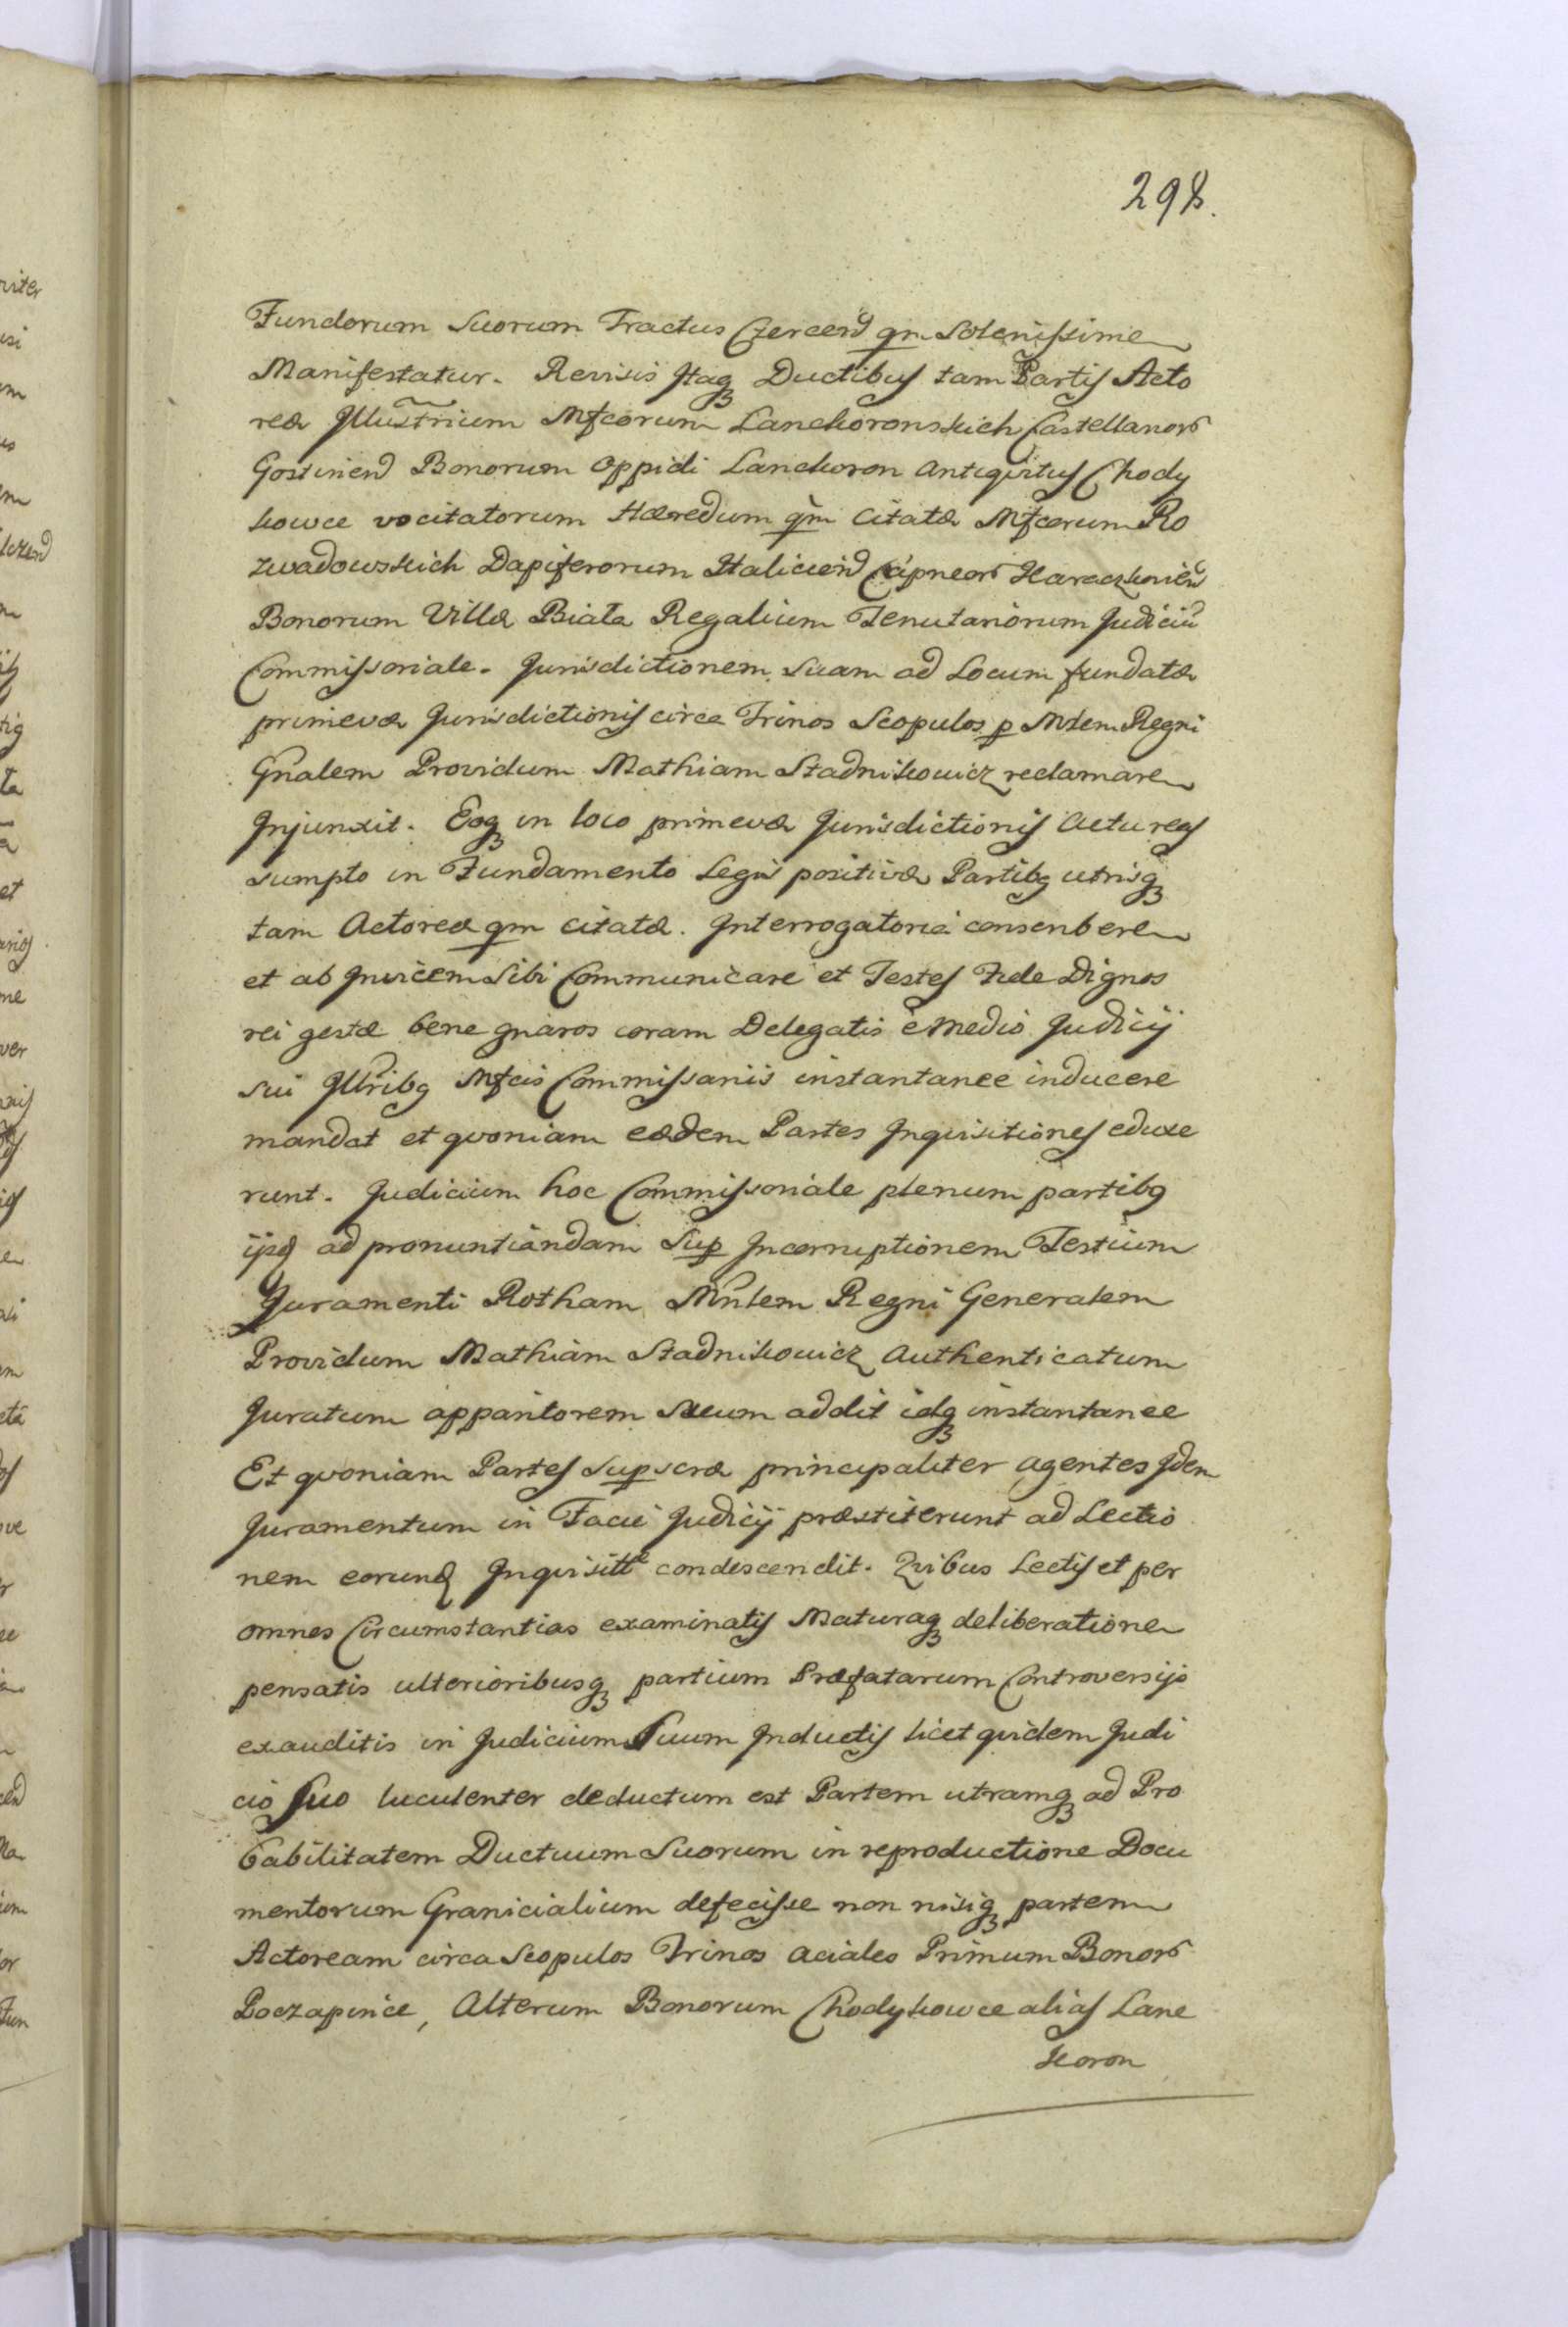 298.
Fundorum Suorum Tractus Czercen̄ qm Solenissime
Manifestatur. Revisis Itaq3 Ductibus tam Partis Acto
reæ Illustrium Mfcorum Lanckoronskich Castellanor
Gostinen̄ Bonorum Oppidi Lanckoron Antiqvitus Chody
kowce vocitatorum Hæredum qm Citatæ Mfcorum Ro
zwadowskich Dapiferorum Halicien̄ Capneor Haraczkovien̄
Bonorum Villæ Biała Regalium Tenutariorum Judiciū
Commissoriale. Jurisdictionem Suam ad Locum fundatæ
primevæ Jurisdictionis circa Trinos Scopulos p Mlem Regni
Gn̄alem Providum Mathiam Stadnikowicz reclamare
Injunxit. Eoq3 in loco primevæ Jurisdictionis Actu reas
sumpto in Fundamento Legis positivæ Partibq utrisq3
tam Actoreæ qm citatæ. Interrogatoria conscribere
et ab Invicem Sibi Communicare et Testes Fide Dignos
rei gestæ bene gnaros coram Delegatis e Medio Judicij
sui Illribq Mfcis Commissariis instantanee inducere
mandat et qvoniam eædem Partes Inqvisitiones eduxe
runt. Judicium hoc Commissoriale plenum partibq
ijsd ad pronuntiandam Sup Incorruptionem Testium
Juramenti Rotham Mn̄lem Regni Generalem
Providum Mathiam Stadnikowicz Authenticatum
Juratum apparitorem Suum addit idq3 instantanee
Et qvoniam Partes supscræ principaliter agentes Idem
Juramentum in Facie Judicij præstiterunt ad Lectio
nem eorund Inqvisitt condescendit. Qvibus Lectis et per
omnes Circumstantias examinatis Maturaq3 deliberatione
pensatis ulterioribusq3 partium Præfatarum Controversijs
exauditis in Judicium Suum Inductis licet qvidem Judi
cio Suo luculenter deductum est Partem utramq3 ad Pro
babilitatem Ductuum Suorum in reproductione Docu
mentorum Granicialium defecisse non nisiq3 partem
Actoream circa Scopulos Trinos aciales Primum Bonor
Poczapince, Alterum Bonorum Chodykowce alias Lanc
Koron